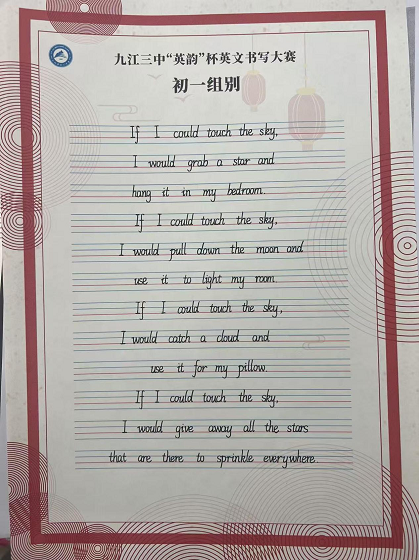 九江三中“英韵”杯英文书写大赛
初一组别
If I could touch the sky,
I would grab a star and
hang it in my bedroom.
If I could touch the sky,
I would pull down the moon and
use it to light my room.
If I could touch the sky,
I would catch a cloud and
use it for my pillow.
If I could touch the sky,
I would give away all the stars
that are there to sprinkle everywhere.